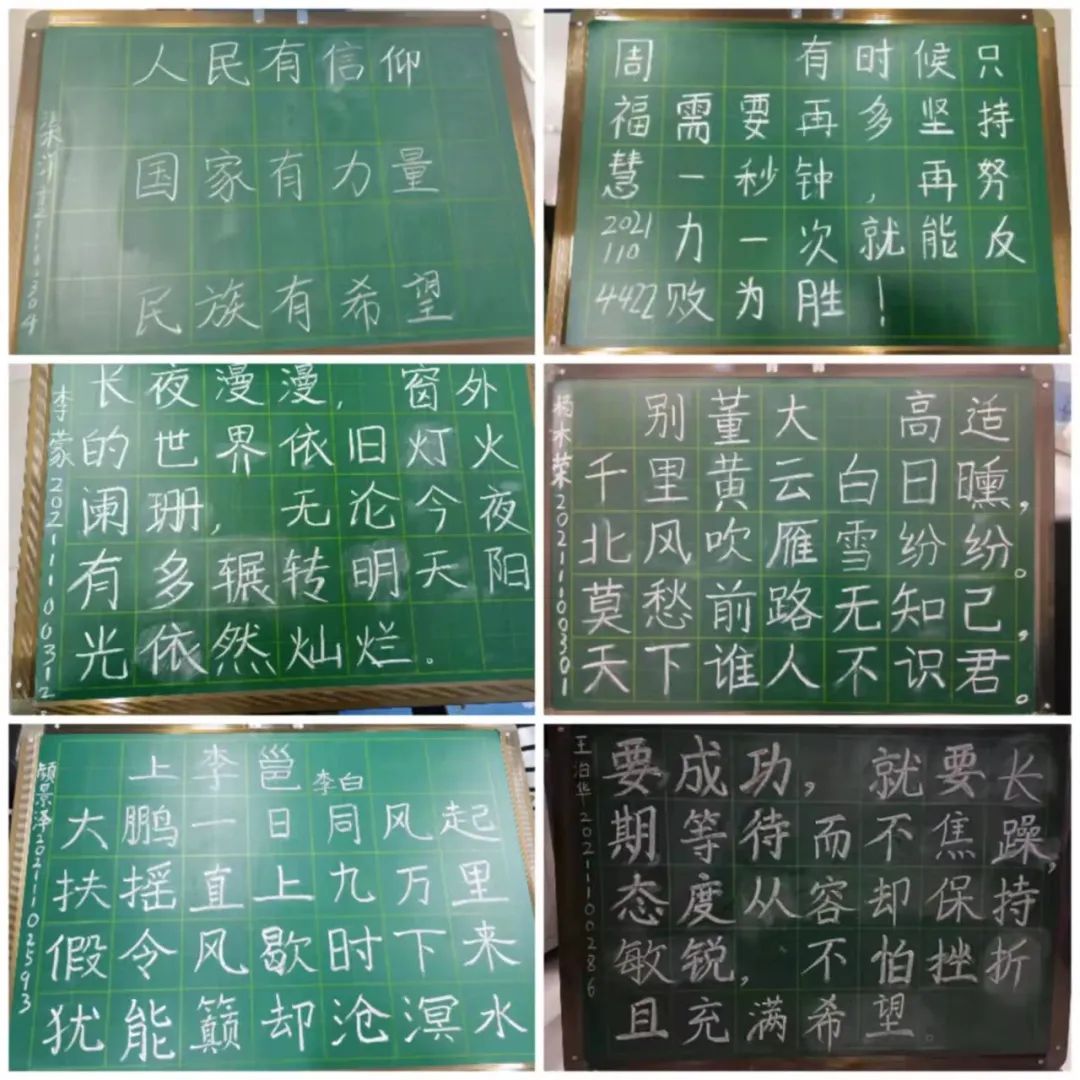 人民有信仰
国家有力量
民族有希望
周福慧
2021
110
4422
有时候只
需要再多坚持
一秒钟，再努
力一次就能反
败为胜！
李蒙20211100312
长夜漫漫，窗外
的世界依旧灯火
阑珊，无沦今夜
有多辗转明天阳
光依然灿烂。
杨木荣20211100301
别董大 高适
千里黄云白日曛，
北风吹雁雪纷纷。
莫愁前路无知己，
天下谁人不识君。
颜景泽20211102593
上李邕 李白
大鹏一日同风起
扶摇直上九万里
假令风歇时下来
犹能却沧溟水
王泊华20211100286
要成功，就要长
期等待而不焦躁，
态度从容却保持
敏锐，不怕挫折
且充满希望。